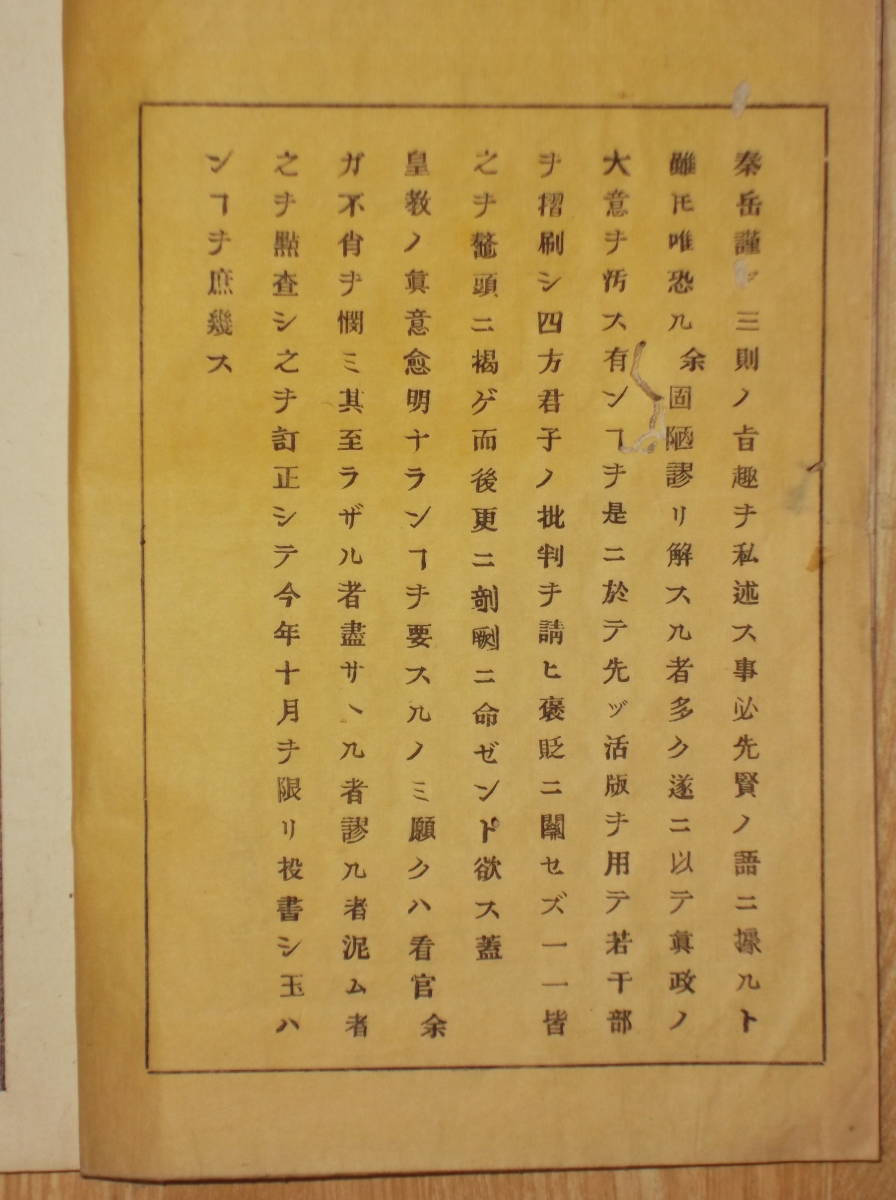 秦岳謹テ三則ノ旨趣ヲ私述ス事必先賢ノ語ニ據ルト
雖𪜈唯恐ル余固陋謬リ解スル者多ク遂ニ以テ眞政ノ
大意ヲ汚ス有ンヿヲ是ニ於テ先ヅ活版ヲ用テ若干部
ヲ摺刷シ四方君子ノ批判ヲ請ヒ褒貶ニ關セズ一一皆
之ヲ鼇頭ニ揭ゲ而後更ニ剞劂ニ命ゼンド欲ス蓋
皇敎ノ眞意愈明ナランヿヲ要スルノミ願クハ看官余
ガ不肖ヲ憫ミ其至ラザル者盡サヽル者謬ル者泥ム者
之ヲ點査シ之ヲ訂正シテ今年十月ヲ限リ投書シ玉ハ
ンヿヲ庶幾ス